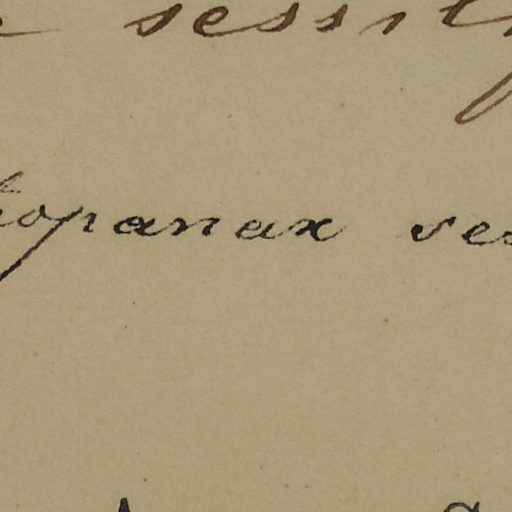 sessil
hopanax ses